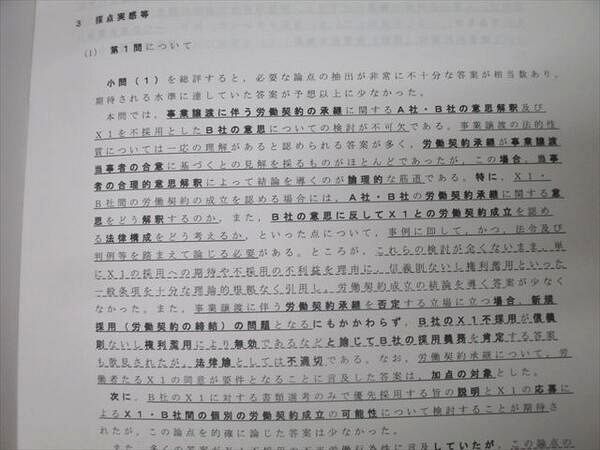 3 採点実感等
(1) 第1問について
小問(1)を総評すると、必要な論点の抽出が非常に不十分な答案が相当数あり、
期待される水準に達していた答案が予想以上に少なかった。
本問では、事業譲渡に伴う労働契約の承継に関するA社・B社の意思解釈及び
X1を不採用としたB社の意思についての検討が不可欠である。事業譲渡の法的性
質については一応の理解があると認められる答案が多く、労働契約承継が事業譲渡
当事者の合意に基づくとの見解を採るものがほとんどであったが、この場合、当事
者の合理的意思解釈によって結論を導くのが論理的な筋道である。特に、X1・
B社間の労働契約の成立を認める場合には、A社・B社の労働契約承継に関する意
思をどう解釈するのか、また、B社の意思に反してX1との労働契約成立を認め
る法律構成をどう考えるか、といった点について、事例に即して、かつ、法令及び
判例等を踏まえて論じる必要がある。ところが、これらの検討が全くないまま、単
にX1の採用への期待や不採用の不利益を理由に、信義則ないし権利濫用といった
一般条項を十分な理論的根拠なく引用し、労働契約成立の結論を導く答案が少なく
なかった。また、事業譲渡に伴う労働契約承継を否定する立場に立つ場合、新規
採用(労働契約の締結)の問題となるにもかかわらず、B社のX1不採用が信義
則ないし権利濫用により無効であるなどと論じてB社の採用義務を肯定する答案
も散見されたが、法律論としては不適切である。なお、労働契約承継について、労
働者たるX1の同意が要件となることに言及した答案は、加点の対象とした。
次に、B社のX1に対する書類選考のみで優先採用する旨の説明とX1の応募に
よるX1・B社間の個別の労働契約成立の可能性について検討することが期待さ
れたが、この論点を的確に論じた答案は少なかった。